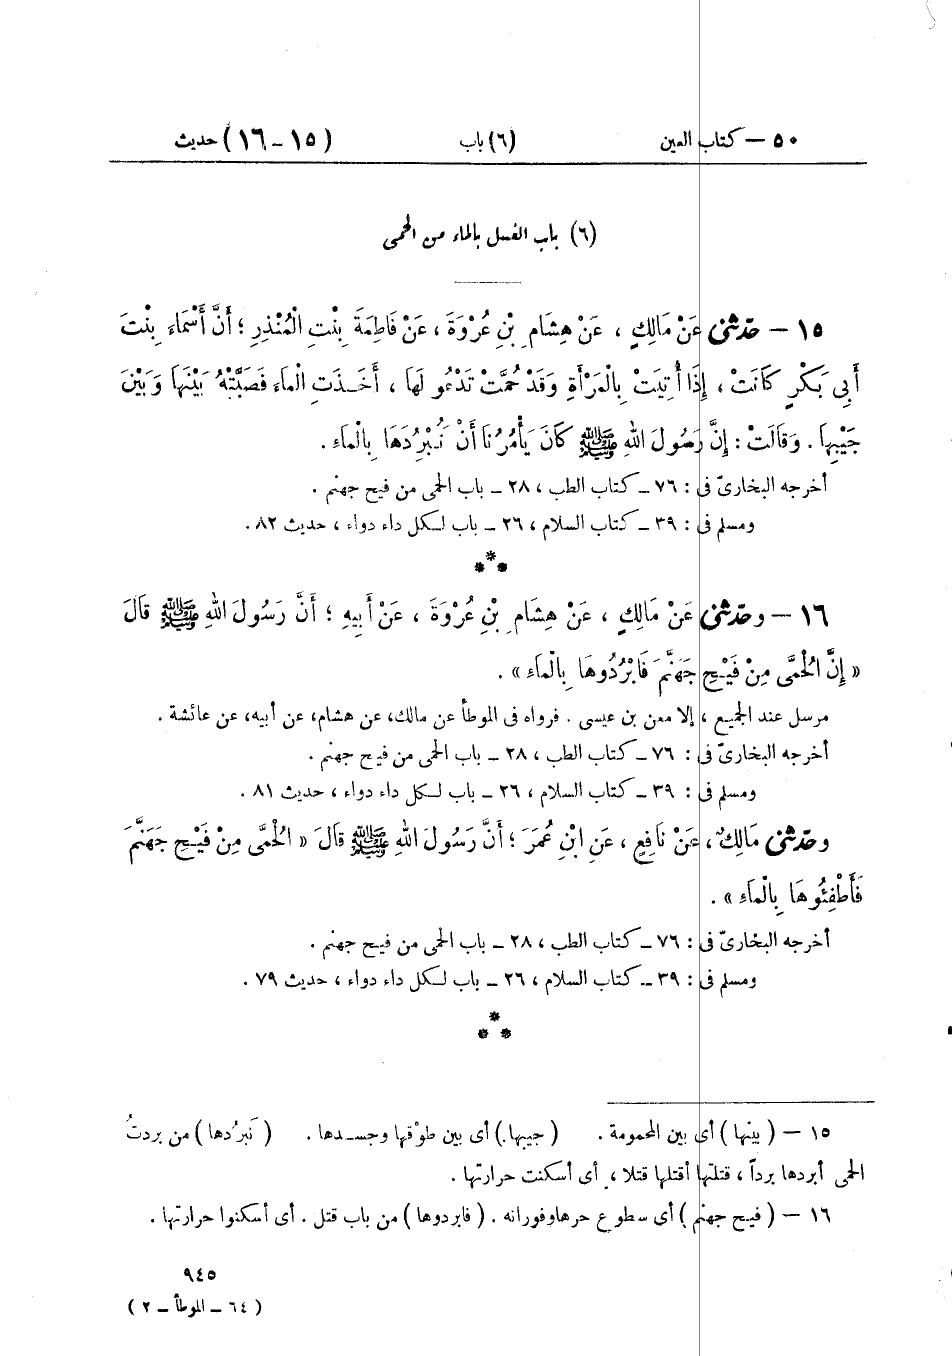 ٥٠ – كتاب العين (٦) باب (١٥ – ١٦) حديث
(٦) باب الغسل بالماء من الحمى
١٥ – حدّثنى عَنْ مَالِكٍ ، عَنْ هِشَامِ بْنِ عُرْوَةَ ، عَنْ فَاطِمَةَ بِنْتِ الْمُنْذِرِ ؛ أَنَّ أَسْمَاءَ بِنْتَ
أَبِى بَكْرٍ كَانَتْ ، إِذَا أُتِيَتْ بِالْمَرْأَةِ وَقَدْ حُمَّتْ تَدْعُو لَهَا ، أَخَذَتِ الْمَاءَ فَصَبَّتْهُ بَيْنَهَا وَبَيْنَ
جَيْبِهَا . وَقَالَتْ : إِنَّ رَسُولَ اللهِ ﷺ كَانَ يَأْمُرُنَا أَنْ نُبْرِدَهَا بِالْمَاءِ .
أخرجه البخارىّ فى : ٧٦ – كتاب الطب ، ٢٨ – باب الحمى من فيح جهنم .
ومسلم فى : ٣٩ – كتاب السلام ، ٢٦ – باب لكل داء دواء ، حديث ٨٢ .
***
١٦ – وحدّثنى عَنْ مَالِكٍ ، عَنْ هِشَامِ بْنِ عُرْوَةَ ، عَنْ أَبِيهِ ؛ أَنَّ رَسُولَ اللهِ ﷺ قَالَ
« إِنَّ الْحُمَّى مِنْ فَيْحِ جَهَنَّمَ فَابْرُدُوهَا بِالْمَاءِ » .
مرسل عند الجميع ، إلا معن بن عيسى . فرواه فى الموطأ عن مالك، عن هشام، عن أبيه، عن عائشة .
أخرجه البخارىّ فى : ٧٦ – كتاب الطب ، ٢٨ – باب الحمى من فيح جهنم .
ومسلم فى : ٣٩ – كتاب السلام ، ٢٦ – باب لكل داء دواء ، حديث ٨١ .
وحدّثنى مَالِكٌ ، عَنْ نَافِعٍ ، عَنِ ابْنِ عُمَرَ ؛ أَنَّ رَسُولَ اللهِ ﷺ قَالَ « الْحُمَّى مِنْ فَيْحِ جَهَنَّمَ
فَأَطْفِئُوهَا بِالْمَاءِ » .
أخرجه البخارىّ فى : ٧٦ – كتاب الطب ، ٢٨ – باب الحمى من فيح جهنم .
ومسلم فى : ٣٩ – كتاب السلام ، ٢٦ – باب لكل داء دواء ، حديث ٧٩ .
***
١٥ – ( بينها ) أى بين المحمومة . ( جيبها ) أى بين طوْقها وجسدها . ( نَبرُدها ) من بردتُ
الحمى أبردها برداً ، قتلتها أقتلها قتلا ، أى أسكنت حرارتها .
١٦ – ( فيح جهنم ) أى سطوع حرها وفورانه . ( فابردوها ) من باب قتل . أى أسكنوا حرارتها .
٩٤٥
( ٦٤ – الموطأ – ٢ )